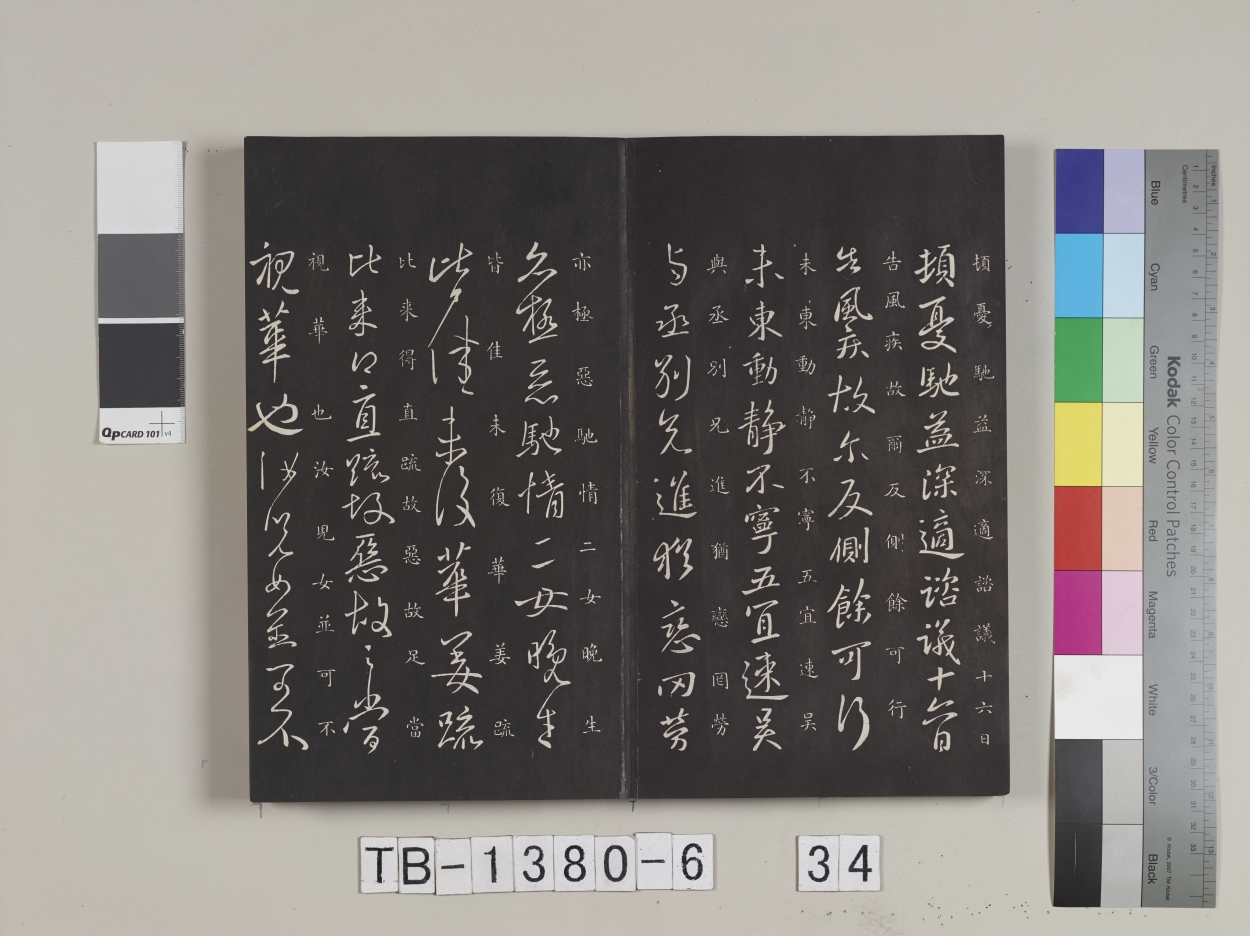 頓憂馳益深適諮議十六日
頓憂馳益深適諮議十六日
告風疾故爾反側餘可行
告風疾故尓反側餘可行
未東動靜不寧五宜速吳
未東動靜不寧五宜速吳
與丞別兄進猶戀罔勞
与丞別兄進猶戀罔勞
亦極惡馳情二女晚生
亦極惡馳情二女晚生
皆佳未復華姜疏
皆佳未復華姜疏
比来得直疏故惡故足當
比来得直疏故惡故之當
視華也汝兒女並可不
視華也汝兒女並可不
QPCARD 101 v4
Kodak Color Control Patches
Blue
Cyan
Green
Yellow
Red
Magenta
White
3/Color
Black
Inches
Centimetres
© Kodak, 2007 TM: Kodak
TB-1380-6 34